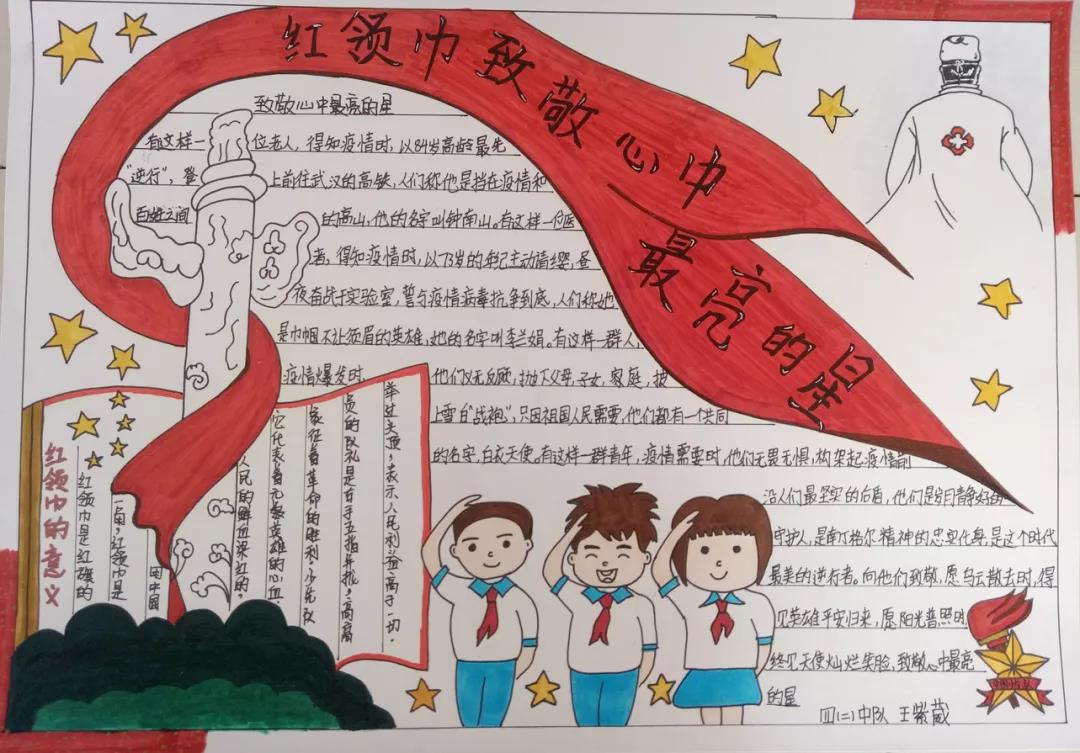 红领巾致敬心中
最亮的星
致敬心中最亮的星
有这样一位老人，得知疫情时，以84岁高龄最先
“逆行”，登上前往武汉的高铁，人们称他是挡在疫情和
百姓之间的高山，他的名字叫钟南山。有这样一位医
者，得知疫情时，以73岁的年纪主动请缨，昼
夜奋战于实验室，誓与疫情病毒抗争到底，人们称她
是巾帼不让须眉的英雄，她的名字叫李兰娟。有这样一群人，
疫情爆发时，他们义无反顾，抛下父母，子女，家庭，披
上雪白“战袍”，只因祖国人民需要，他们都有一个共同
的名字，白衣天使。有这样一群青年，疫情需要时，他们无畏无惧，构架起疫情前
沿人们最坚实的后盾，他们是岁月静好的
守护人，是南丁格尔精神的忠实化身，是这个时代
最美的逆行者。向他们致敬，愿乌云散去时，得
见英雄平安归来，愿阳光普照时，
终见天使灿烂笑脸，致敬心中最亮
的星
四(二)中队 王紫葳
红领巾的意义
红领巾是红旗的
一角，红领巾是
用中国
人民的鲜血染红的，
忆代表着无数英雄的心血，
象征着革命的胜利，少先队
员的队礼是右手五指并拢，高高
举过头顶，表示人民利益高于一切。